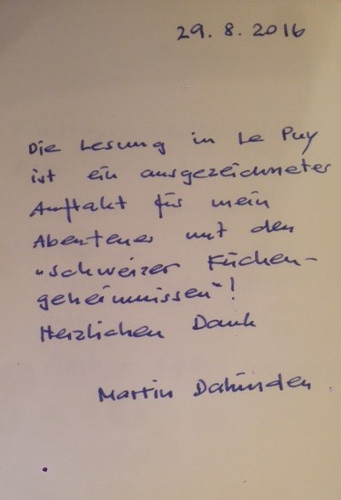 29. 8. 2016
Die Lesung in Le Puy
ist ein ausgezeichneter
Auftakt für mein
Abenteuer mit den
"Schweizer Küchen-
geheimnissen"!
Herzlichen Dank
Martin Dahinden